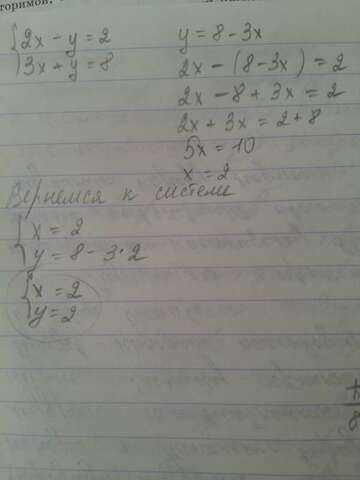 {2x - y = 2
{3x + y = 8
y = 8 - 3x
2x - (8 - 3x) = 2
2x - 8 + 3x = 2
2x + 3x = 2 + 8
5x = 10
x = 2
Вернемся к системе
{x = 2
{y = 8 - 3 · 2
{x = 2
{y = 2